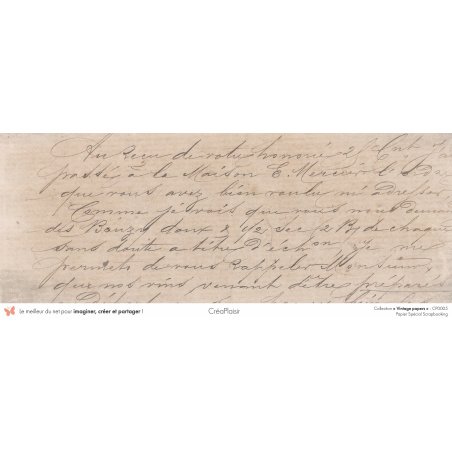 Au reçu de votre honorée 2 Cnt
passés à la Maison E. Mercier &
que vous avez bien voulu m'adresser
Comme je vois que vous nous
des Bouzy dont 2 1/2 sec 2 Bs de chaque
sans doute a titre D'échon, Je me
permets de vous rappeler Monsieur,
que nos vins venant d'être préparés
Le meilleur du net pour imaginer, créer et partager !
CréaPlaisir
Collection « Vintage papers » - CP0005
Papier Spécial Scrapbooking